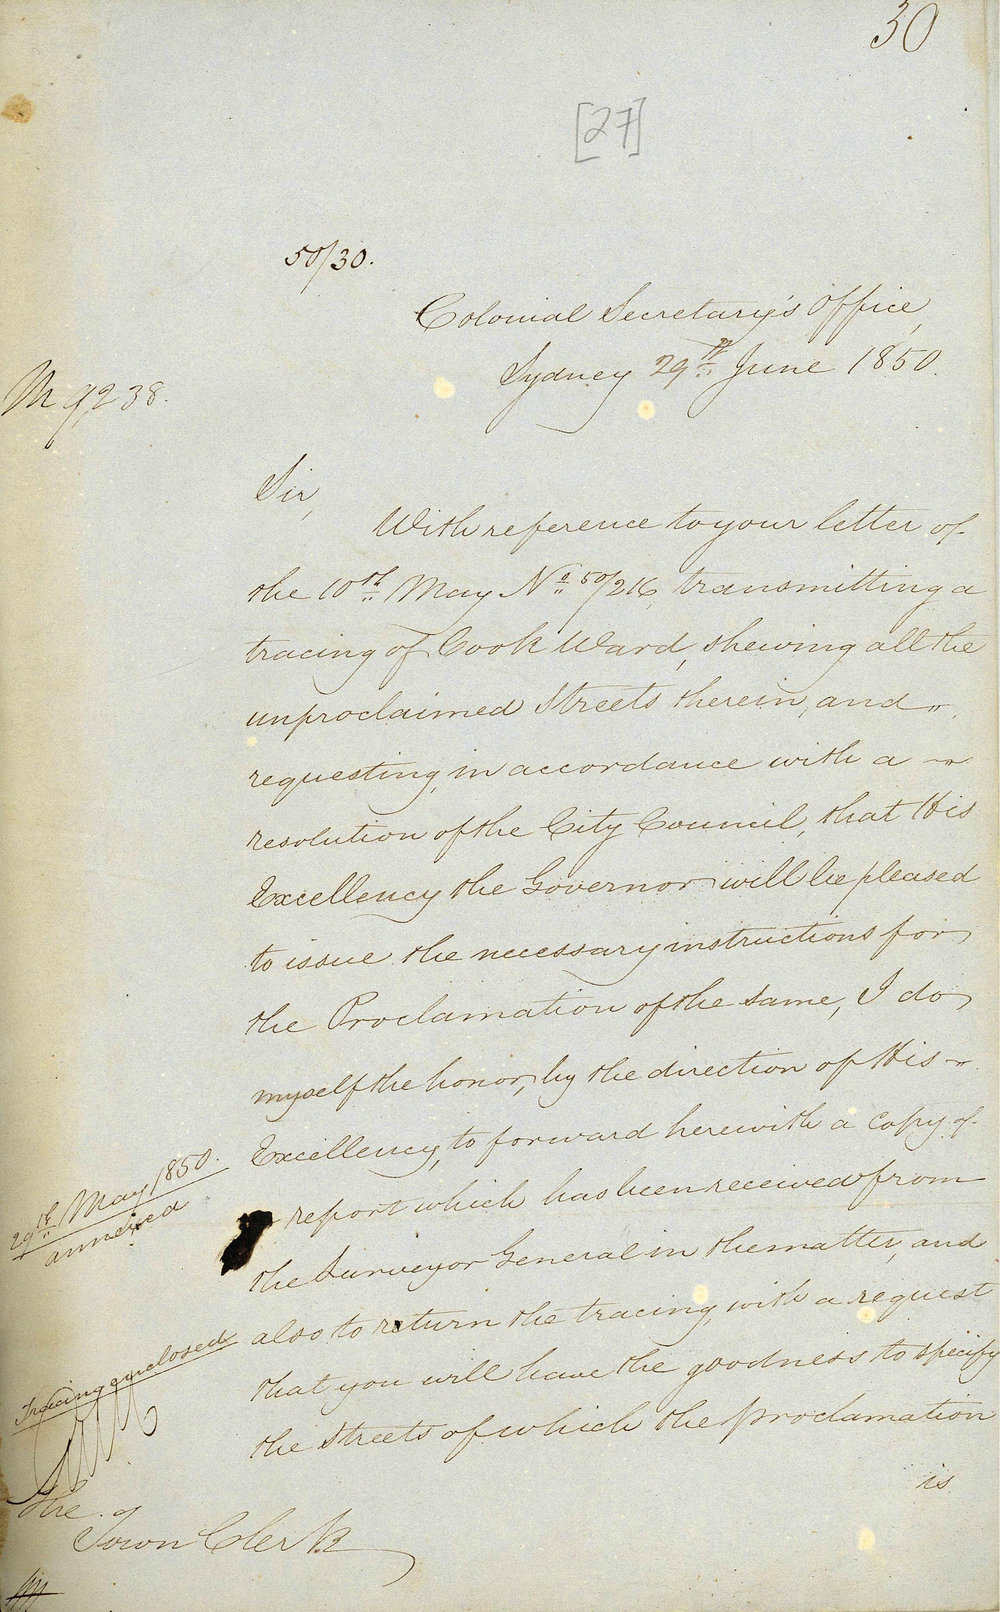 30
[27]
50/30.
Colonial Secretary's Office,
Sydney 29th June 1850.
M 9,238.
Sir,
With reference to your letter of
the 10th May No 50/216, transmitting a
tracing of Cook Ward, shewing all the
unproclaimed Streets therein, and
requesting, in accordance with a
resolution of the City Council, that His
Excellency the Governor will be pleased
to issue the necessary instructions for
the Proclamation of the same, I do
myself the honor, by the direction of His
Excellency, to forward herewith a copy of
29th May 1850.
annexed
report which has been received from
the Surveyor General in the matter, and
also to return the tracing, with a request
Tracing enclosed
that you will have the goodness to specify
the Streets of which the proclamation
is
The
Town Clerk